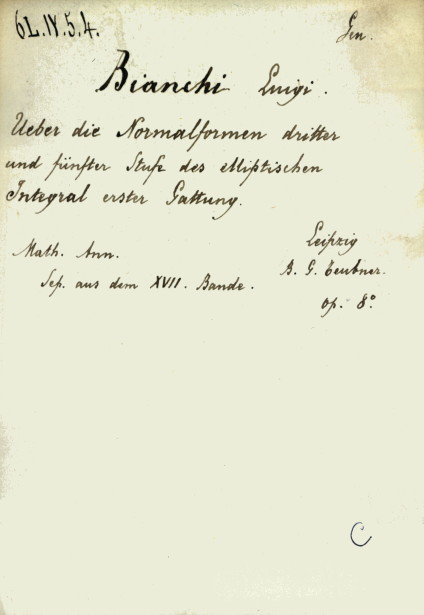 6L.IV.5.4.
Gen.
Bianchi Luigi.
Ueber die Normalformen dritter
und fünfter Stufe des elliptischen
Integral erster Gattung.
Math. Ann.
Sep. aus dem XVII. Bande.
Leipzig
B. G. Teubner.
op. 8°.
C